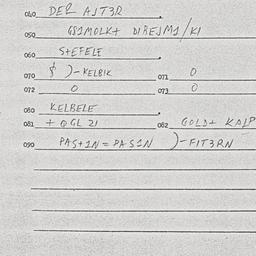 040 DER AJT3R
050 GS1MOLK+ DIREJM1/KI
060 S+EFELE
070 $ )-KELBIK 071 0
072 0 073 0
080 KELBELE
081 + QGL 21 082 GOLD+ KALP
090 PAS+1N = PAS1N )-FIT3RN